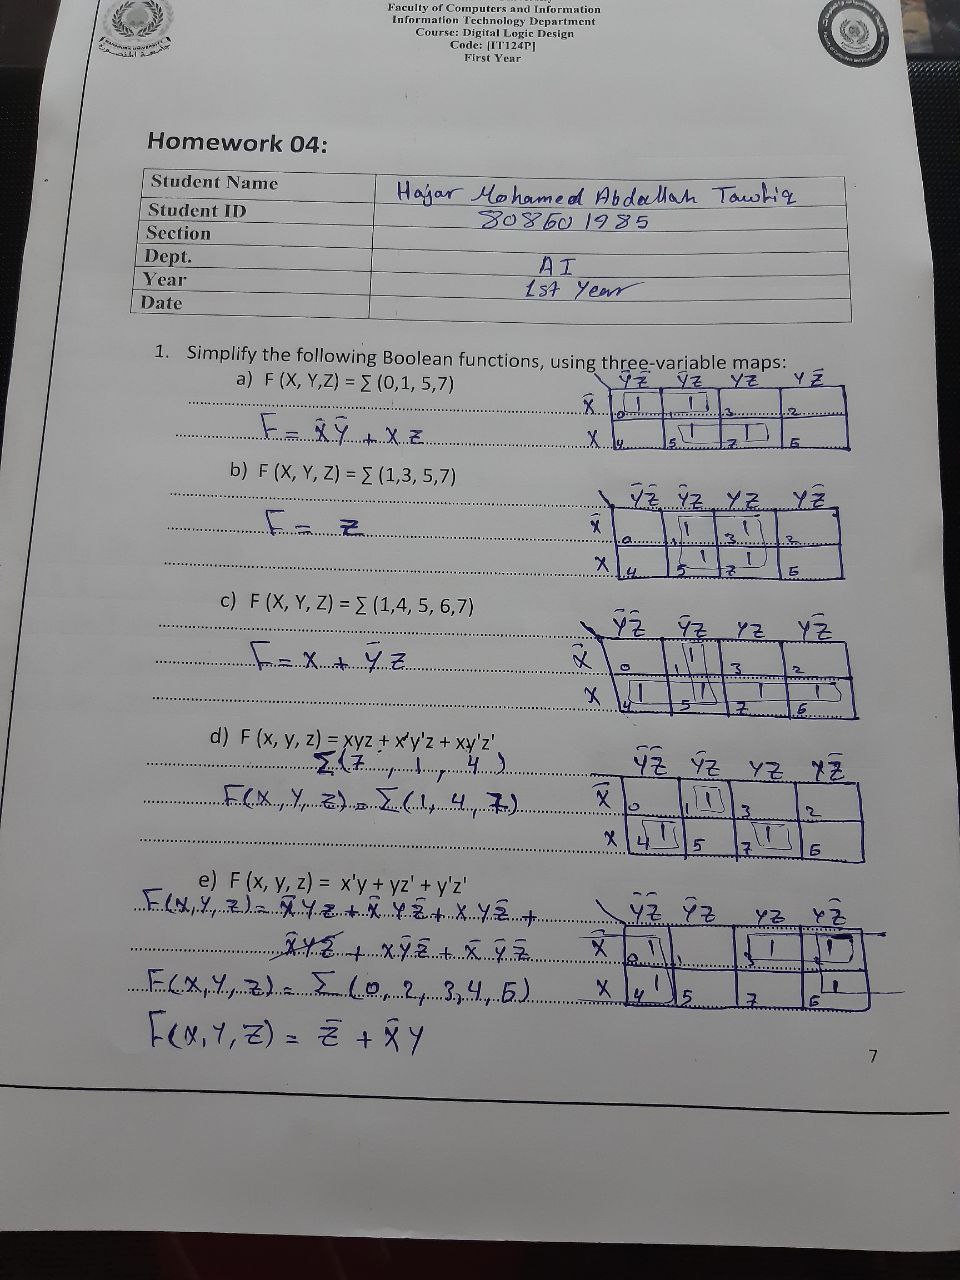 Faculty of Computers and Information
Information Technology Department
Course: Digital Logic Design
Code: [IT124P]
First Year
Homework 04:
Student Name Hajar Mohamed Abdallah Tawfiq
Student ID 808601985
Section
Dept. AI
Year 1st Year
Date
1. Simplify the following Boolean functions, using three-variable maps:
a) F (X, Y,Z) = ∑ (0,1, 5,7)
Y̅Z̅ Y̅Z YZ YZ̅
X̅ 0 1 1 1 3 2
F = X̅Y̅ + XZ
X 4 5 1 7 1 6
b) F (X, Y, Z) = ∑ (1,3, 5,7)
Y̅Z̅ Y̅Z YZ YZ̅
F = Z
X̅ 0 1 1 3 1 2
X 4 5 1 7 1 6
c) F (X, Y, Z) = ∑ (1,4, 5, 6,7)
Y̅Z̅ Y̅Z YZ YZ̅
F = X + Y̅Z
X̅ 0 1 1 3 2
X 4 1 5 1 7 1 6 1
d) F (x, y, z) = xyz + x'y'z + xy'z'
∑(7, 1, 4)
Y̅Z̅ Y̅Z YZ YZ̅
F(X, Y, Z) = ∑(1, 4, 7)
X̅ 0 1 1 3 2
X 4 1 5 7 1 6
e) F (x, y, z) = x'y + yz' + y'z'
F(X, Y, Z) = X̅YZ + X̅YZ̅ + XYZ̅ +
Y̅Z̅ Y̅Z YZ YZ̅
X̅YZ̅ + XY̅Z̅ + X̅Y̅Z̅
X̅ 0 1 1 3 1 2 1
F(X, Y, Z) = ∑ (0, 2, 3, 4, 6)
X 4 1 5 7 6 1
F(X, Y, Z) = Z̅ + X̅Y
7